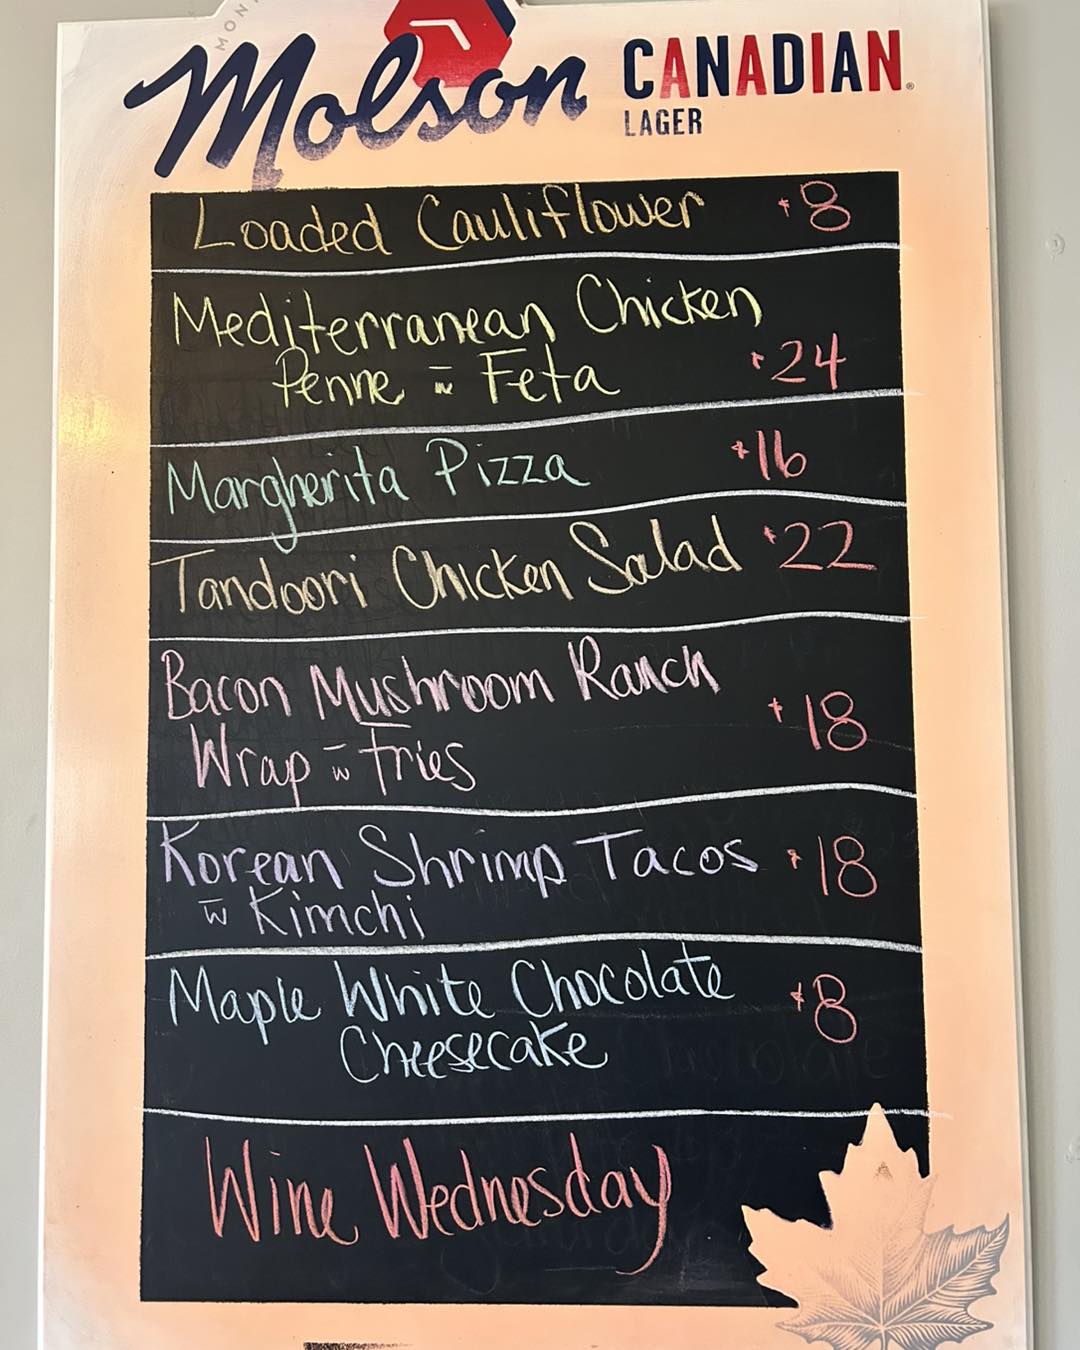 Molson CANADIAN®
LAGER
Loaded Cauliflower $8
Mediterranean Chicken
Penne w Feta $24
Margherita Pizza $16
Tandoori Chicken Salad $22
Bacon Mushroom Ranch
Wrap w fries $18
Korean Shrimp Tacos $18
w Kimchi
Maple White Chocolate $8
Cheesecake
Wine Wednesday